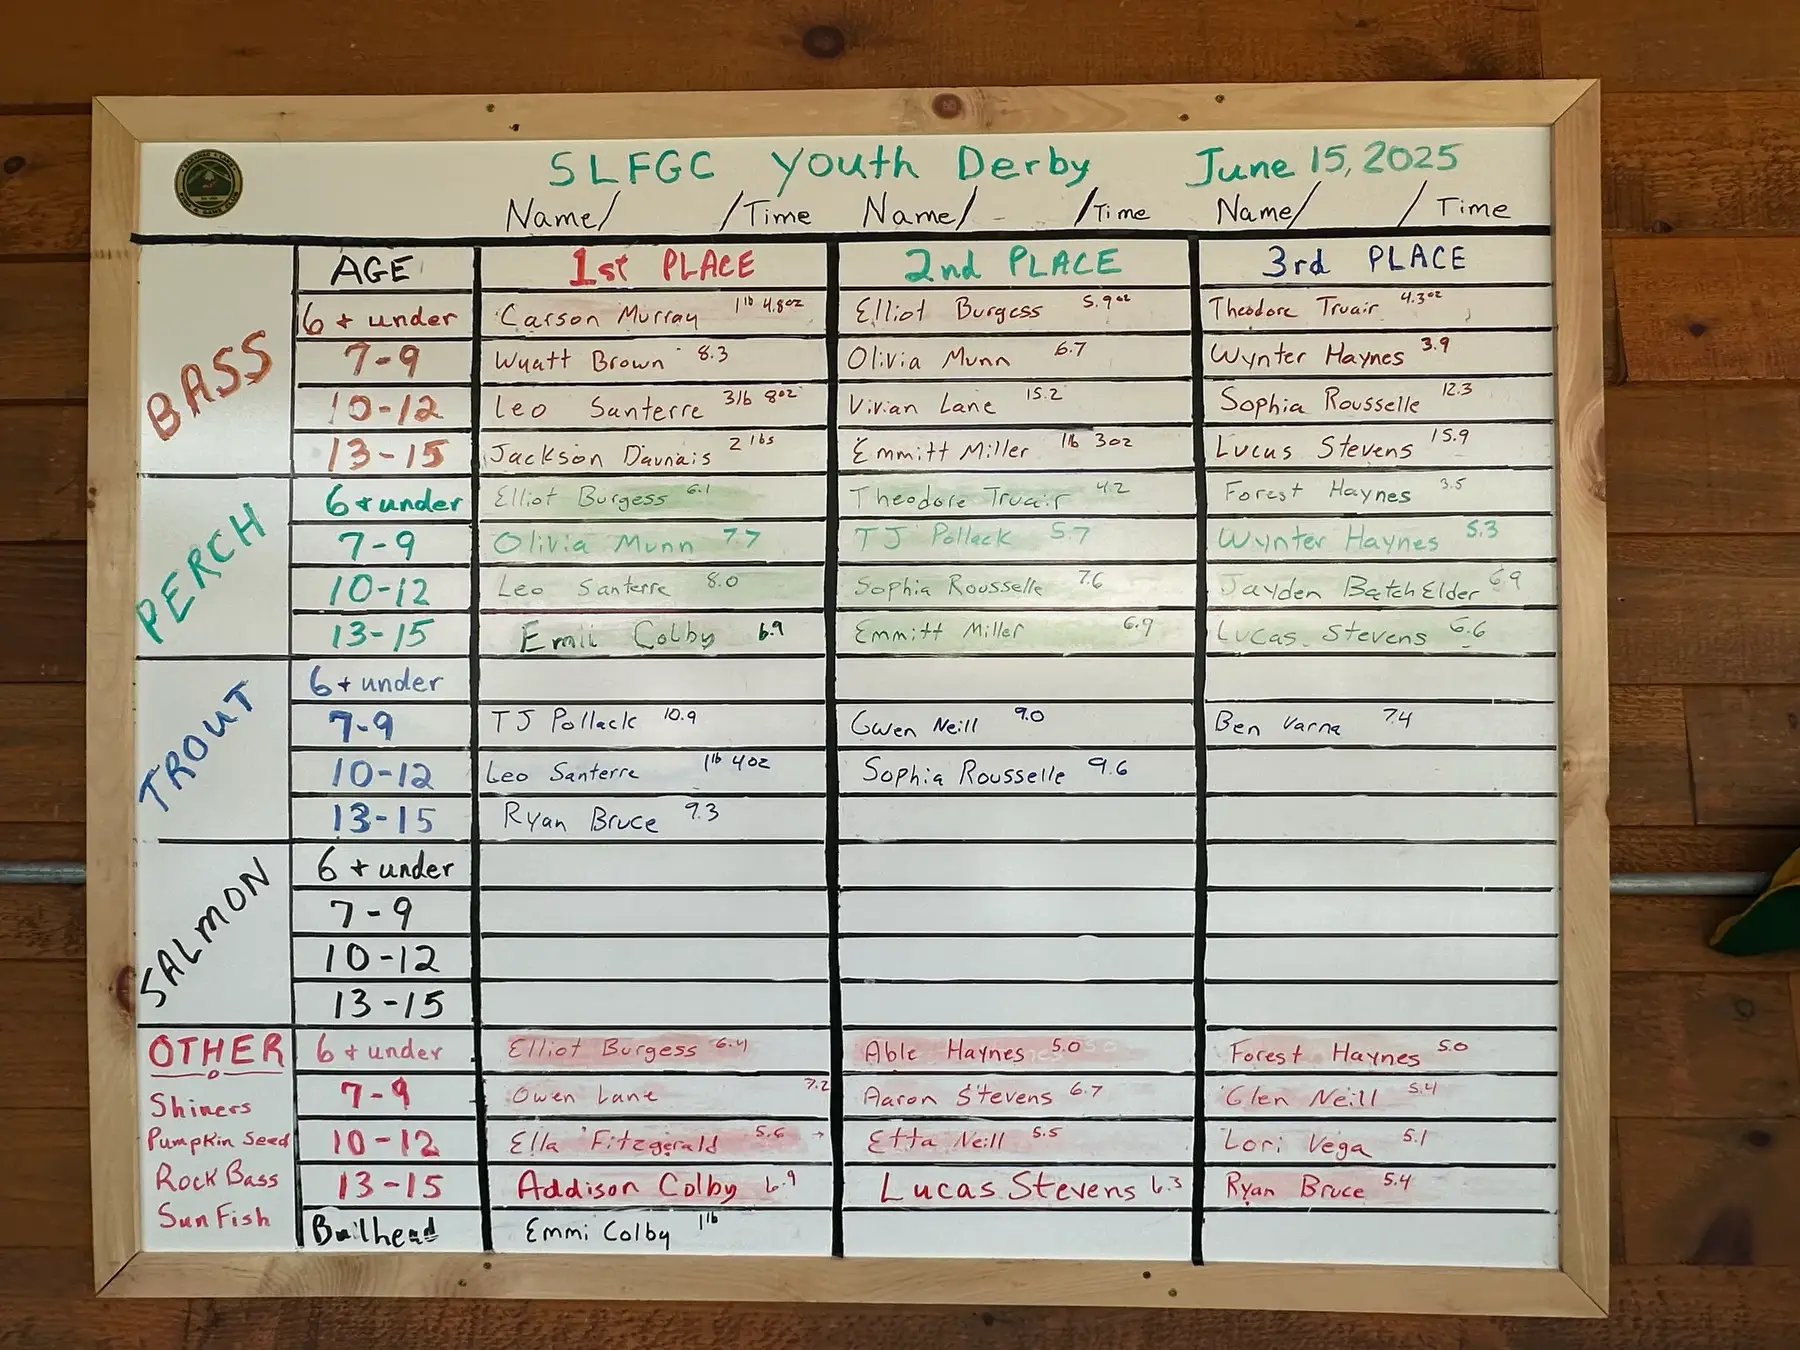 SLFGC Youth Derby June 15, 2025
Name/ /Time Name/ - /Time Name/ / Time
AGE 1st PLACE 2nd PLACE 3rd PLACE
BASS
6 + under Carson Murray 1lb 4.8oz Elliot Burgess 5.9oz Theodore Truair 4.3oz
7-9 Wyatt Brown 8.3 Olivia Munn 6.7 Wynter Haynes 3.9
10-12 Leo Santerre 3lb 8oz Vivian Lane 15.2 Sophia Rousselle 12.3
13-15 Jackson Daunais 2 lbs Emmitt Miller 1lb 3oz Lucus Stevens 15.9
PERCH
6 + under Elliot Burgess 6.1 Theodore Truair 4.2 Forest Haynes 3.5
7-9 Olivia Munn 7.7 TJ Pollack 5.7 Wynter Haynes 5.3
10-12 Leo Santerre 8.0 Sophia Rousselle 7.6 Jayden BatchElder 6.9
13-15 Emili Colby 6.9 Emmitt Miller 6.9 Lucas Stevens 6.6
TROUT
6 + under
7-9 TJ Pollack 10.9 Gwen Neill 9.0 Ben Varna 7.4
10-12 Leo Santerre 1lb 4oz Sophia Rousselle 9.6
13-15 Ryan Bruce 9.3
SALMON
6 + under
7-9
10-12
13-15
OTHER
6 + under Elliot Burgess 6.4 Able Haynes 5.0 Forest Haynes 5.0
7-9 Owen Lane 7.2 Aaron Stevens 6.7 Glen Neill 5.4
Shiners
Pumpkin Seed
10-12 Ella Fitzgerald 5.6 Etta Neill 5.5 Lori Vega 5.1
Rock Bass
13-15 Addison Colby 6.9 Lucas Stevens 6.3 Ryan Bruce 5.4
Sun Fish
Bullhead Emmi Colby 1lb